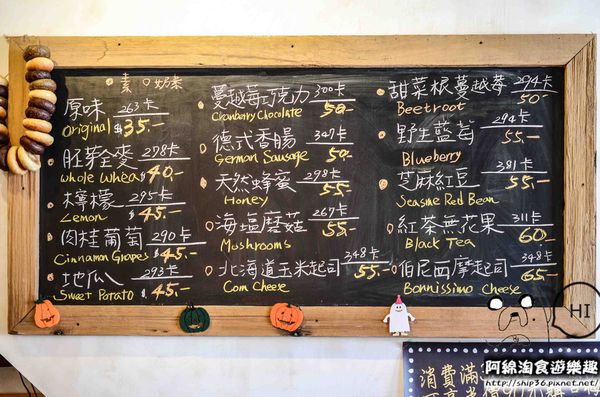 素 奶素
原味 263卡
Original $35.-
胚芽全麥 298卡
Whole Wheat $40.-
檸檬 295卡
Lemon $45.-
肉桂葡萄 290卡
Cinnamon Grapes $45.-
地瓜 293卡
Sweet Potato $45.-
蔓越莓巧克力 300卡
Cranberry Chocolate 50.-
德式香腸 347卡
German Sausage 50.-
天然蜂蜜 298卡
Honey 55.-
海塩蘑菇 267卡
Mushrooms 55.-
北海道玉米起司 348卡
Corn Cheese 55.-
甜菜根蔓越莓 294卡
Beetroot 50.-
野生藍莓 294卡
Blueberry 55.-
芝麻紅豆 381卡
Seasme Red Bean 55.-
紅茶無花果 311卡
Black Tea 60.-
伯尼西摩起司 348卡
Bonnissimo Cheese 65.-
HI
消費滿
阿綿淘食遊樂趣
http://ship36.pixnet.net/